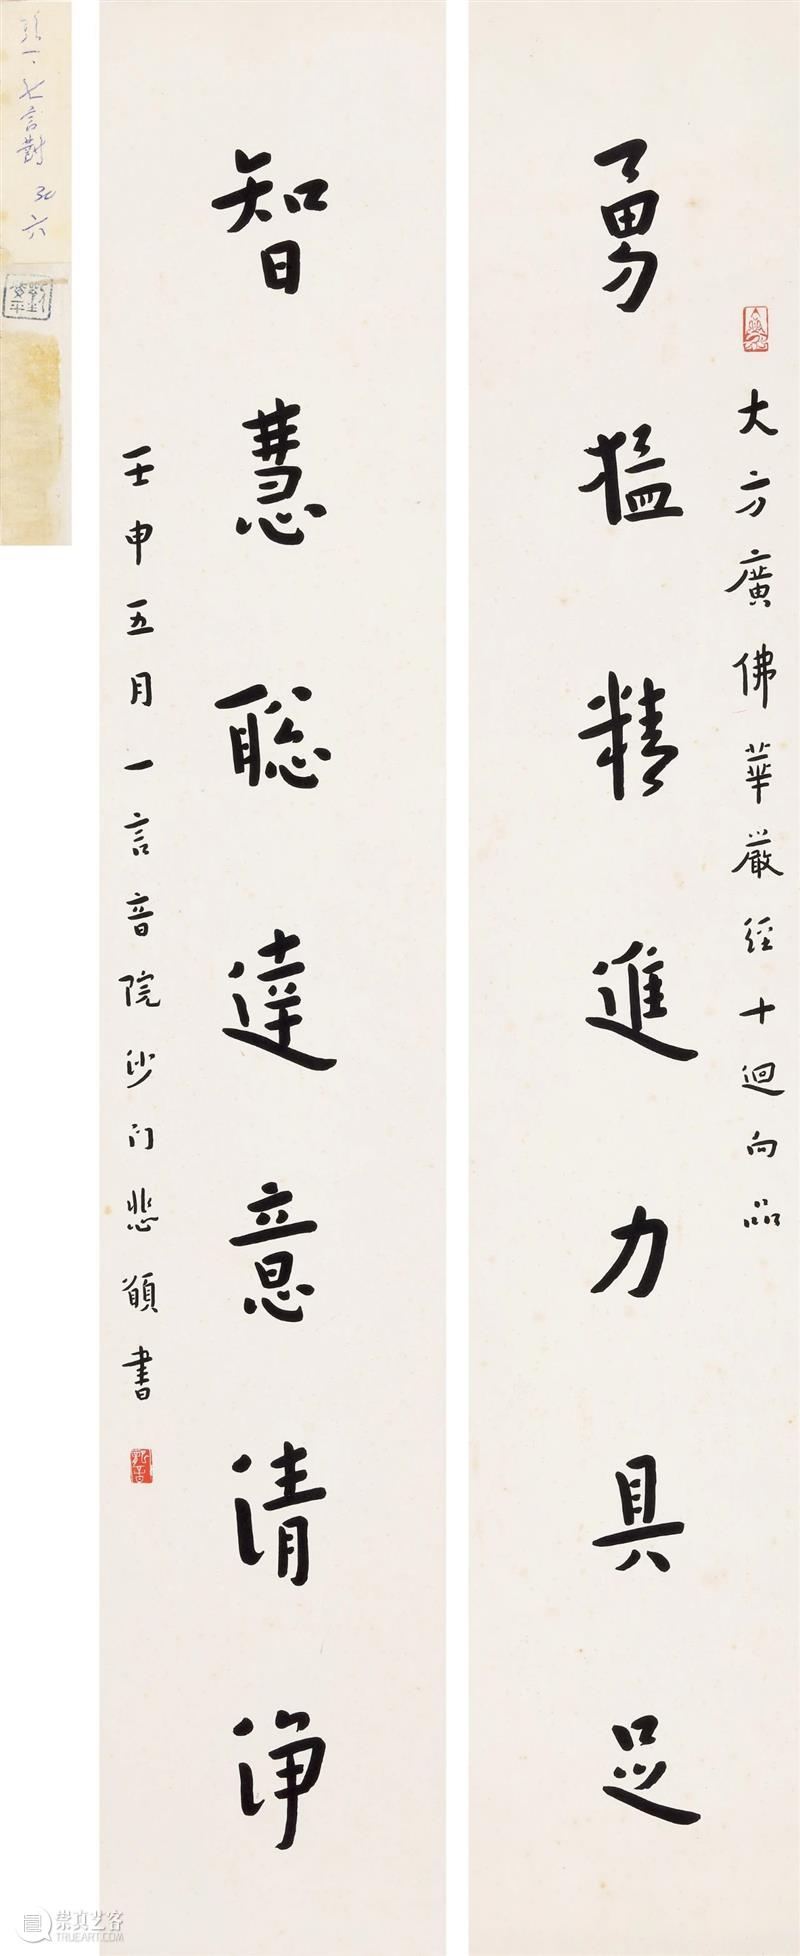 大方廣佛華嚴經十迴向品
勇猛精進力具足
智慧聰達意清淨
壬申五月一言音院沙门悲願書
七言對
六
崇真艺客
TRUEART.COM